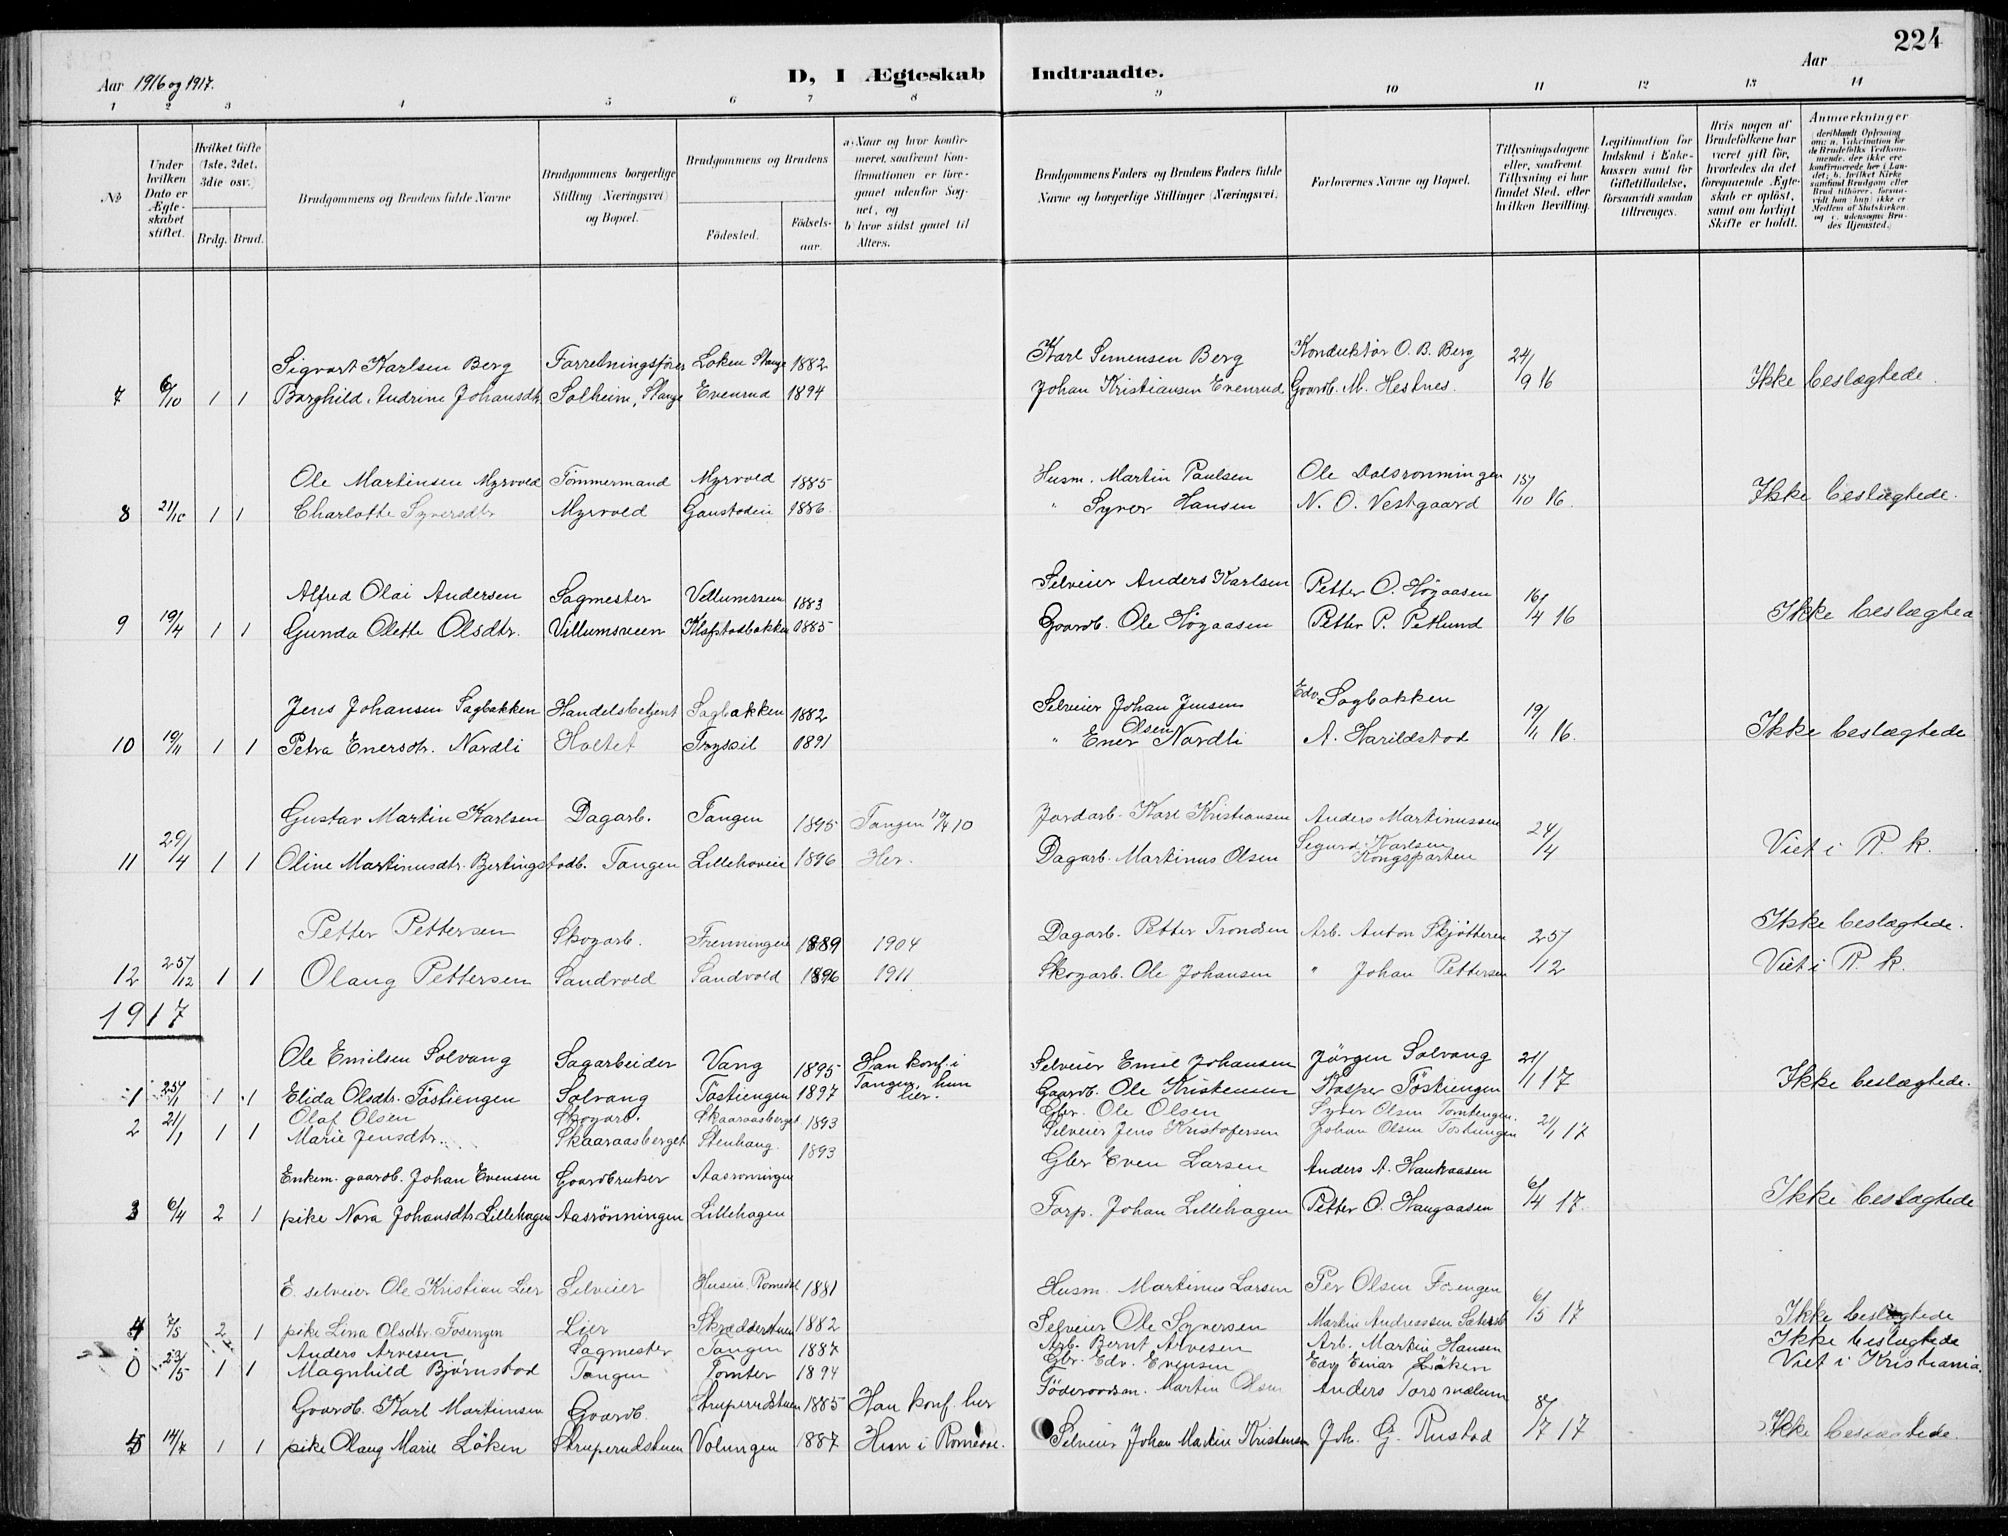 224
Aar 1916 og 1917.
D, I Ægteskab Indtraadte.
Aar
1 2 3 4 5 6 7 8 9 10 11 12 13 14
No
Under hvilken Dato er Ægteskabet stiftet.
Hvilket Gifte (1ste, 2det, 3die osv.)
Brdg. Brud.
Brudgommens og Brudens fulde Navne
Brudgommens borgerlige Stilling (Næringsvei) og Bopæl.
Brudgommens og Brudens
Fødested.
Fødselsaar.
a) Naar og hvor konfirmeret, saafremt Konfirmationen er foregaaet udenfor Sognet, og
b) hvor sidst gaaet til Alters.
Brudgommens Faders og Brudens Faders fulde Navne og borgerlige Stillinger (Næringsvei).
Forlovernes Navne og Bopæl.
Tillysningsdagene eller, saafremt Tillysning ei har fundet Sted, efter hvilken Bevilling.
Legitimation for Indskud i Enkekassen samt for Giftetilladelse, forsaavidt saadan tiltrænges.
Hvis nogen af Brudefolkene har været gift før, hvorledes da det foregaaende Ægteskab er opløst, samt om lovligt Skifte er holdt.
Anmærkninger
Sigvart Karlsen Berg Forretningsfører Løken Stange 1882 Karl Semensen Berg Konduktør O. B. Berg 24/
7 6/10 1 1 Borghild Andrine Johansdtr. Solheim, Stange Evenrud 1894 Johan Kristiansen Evenrud Gaardb. M. Hestnes. 9 16 Ikke beslægtede.
Ole Martinsen Myrvold Tømmermand Myrvold 1885 Husm. Martin Paulsen Ole Dalsrønningen 15/
8 21/10 1 1 Charlotte Syversdtr Myrvold Gaustadeie 1886. " Syver Hansen N. O. Vestgaard 10 16. Ikke beslægtede.
Alfred Olai Andersen Sagmester 1883 Selveier Anders Karlsen Petter O. Høgaasen 16/
9 19/4 1 1 Gunda Olette Olsdtr. 1885 Gaardb. Ole Høgaasen Petter P. Petlund 4 16 Ikke beslægtea
Jens Johansen Sagbakken Handelsbetjent Sagbakken 1882 Selveier Johan Jensen Edv. Sagbakken 19/
10 19/11 1 1 Petra Enersdtr. Nordli Holtet Trysil 1891 " Ener Olsen Nordli A. Harildstad 11 16. Ikke beslægtede
Gustav Martin Karlsen Dagarb. Tangen 1895 Tangen 10/4 10 Jordarb. Karl Kristiansen Anders Martinussen 24/
11 29/4 1 1 Oline Martinusdtr. Bertingstadb. Tangen Lillehoveie 1896 Her. Dagarb. Martinus Olsen Segurd Karlsen Kongsparten 4 Viet i R. k.
Petter Pettersen Skogarb. Frenningeie 1889 1904 Dagarb. Petter Trondsen Arb. Anton Skjøtteren 25/ Ikke beslægtede.
12 25/12 1 1 Olaug Pettersen Sandvold Sandvold 1896 1911 Skogarb. Ole Johansen " Johan Pettersen 12 Viet i R. k.
1917
Ole Emilsen Solvang Sagarbeider Vang 1895 Han konf. i Selveier Emil Johansen Jørgen Solvang 21/
1 25/1 1 1 Elida Olsdtr. Töstiengen Solvang Töstiengen 1897 Tangen, hun her. Gaardb. Ole Kristensen Kasper Töstiengen 1 17 Ikke beslægtede.
Olaf Olsen Skogarb. Skaaraasberget 1893 Gbr. Ole Olsen Syver Olsen Tomtengen.
2 21/1 1 1 Marie Jensdtr. Skaaraasberget Stenhaug. 1893 Selveier Jens Kristofersen Johan Olsen Tostiengen 21/1 17
Enkem. gaardb. Johan Evensen Gaardbruker Aasrønningen Gbr Even Larsen Anders A. Haukaasen 6/
3 6/4 2 1 pike Nora Johansdtr. Lillehagen Aasrönningen Lillehagen Torp. Johan Lillehagen Petter O. Haugaasen 4 17. Ikke beslægtede
E. selveier Ole Kristian Lier Selveier Huseie Romedal 1881 Husm. Martinus Larsen Per Olsen Fosengen 6/
4 7/5 2 1 pike Lina Olsdtr. Fosengen Lier Skrædderstuen 1882 Selveier Ole Syversen Martin Andreassen 5 17 Ikke beslægtede
Anders Arvesen Sagmester Tangen 1887 Arb. Bernt Arvesen Arb. Martin Hansen Ikke beslægtede
0 23/5 1 1 Magnhild Bjørnstad Tangen Tomter 1894 Gbr. Edv. Evensen Edv. Einar Löken Viet i Kristiania.
Gaardb. Karl Martinsen Gaardb. Struperudstuen 1885 Han konf. her Föderaadsm. Martin Olsen Anders Torsmælum 8/
5 14/7 1 1 pike Olaug Marie Löken Struperudstuen Volungen 1887 Hun i Romedal. Selveier Johan Martin Kristensen Joh. G. Rustad 7 17 Ikke beslægtede.